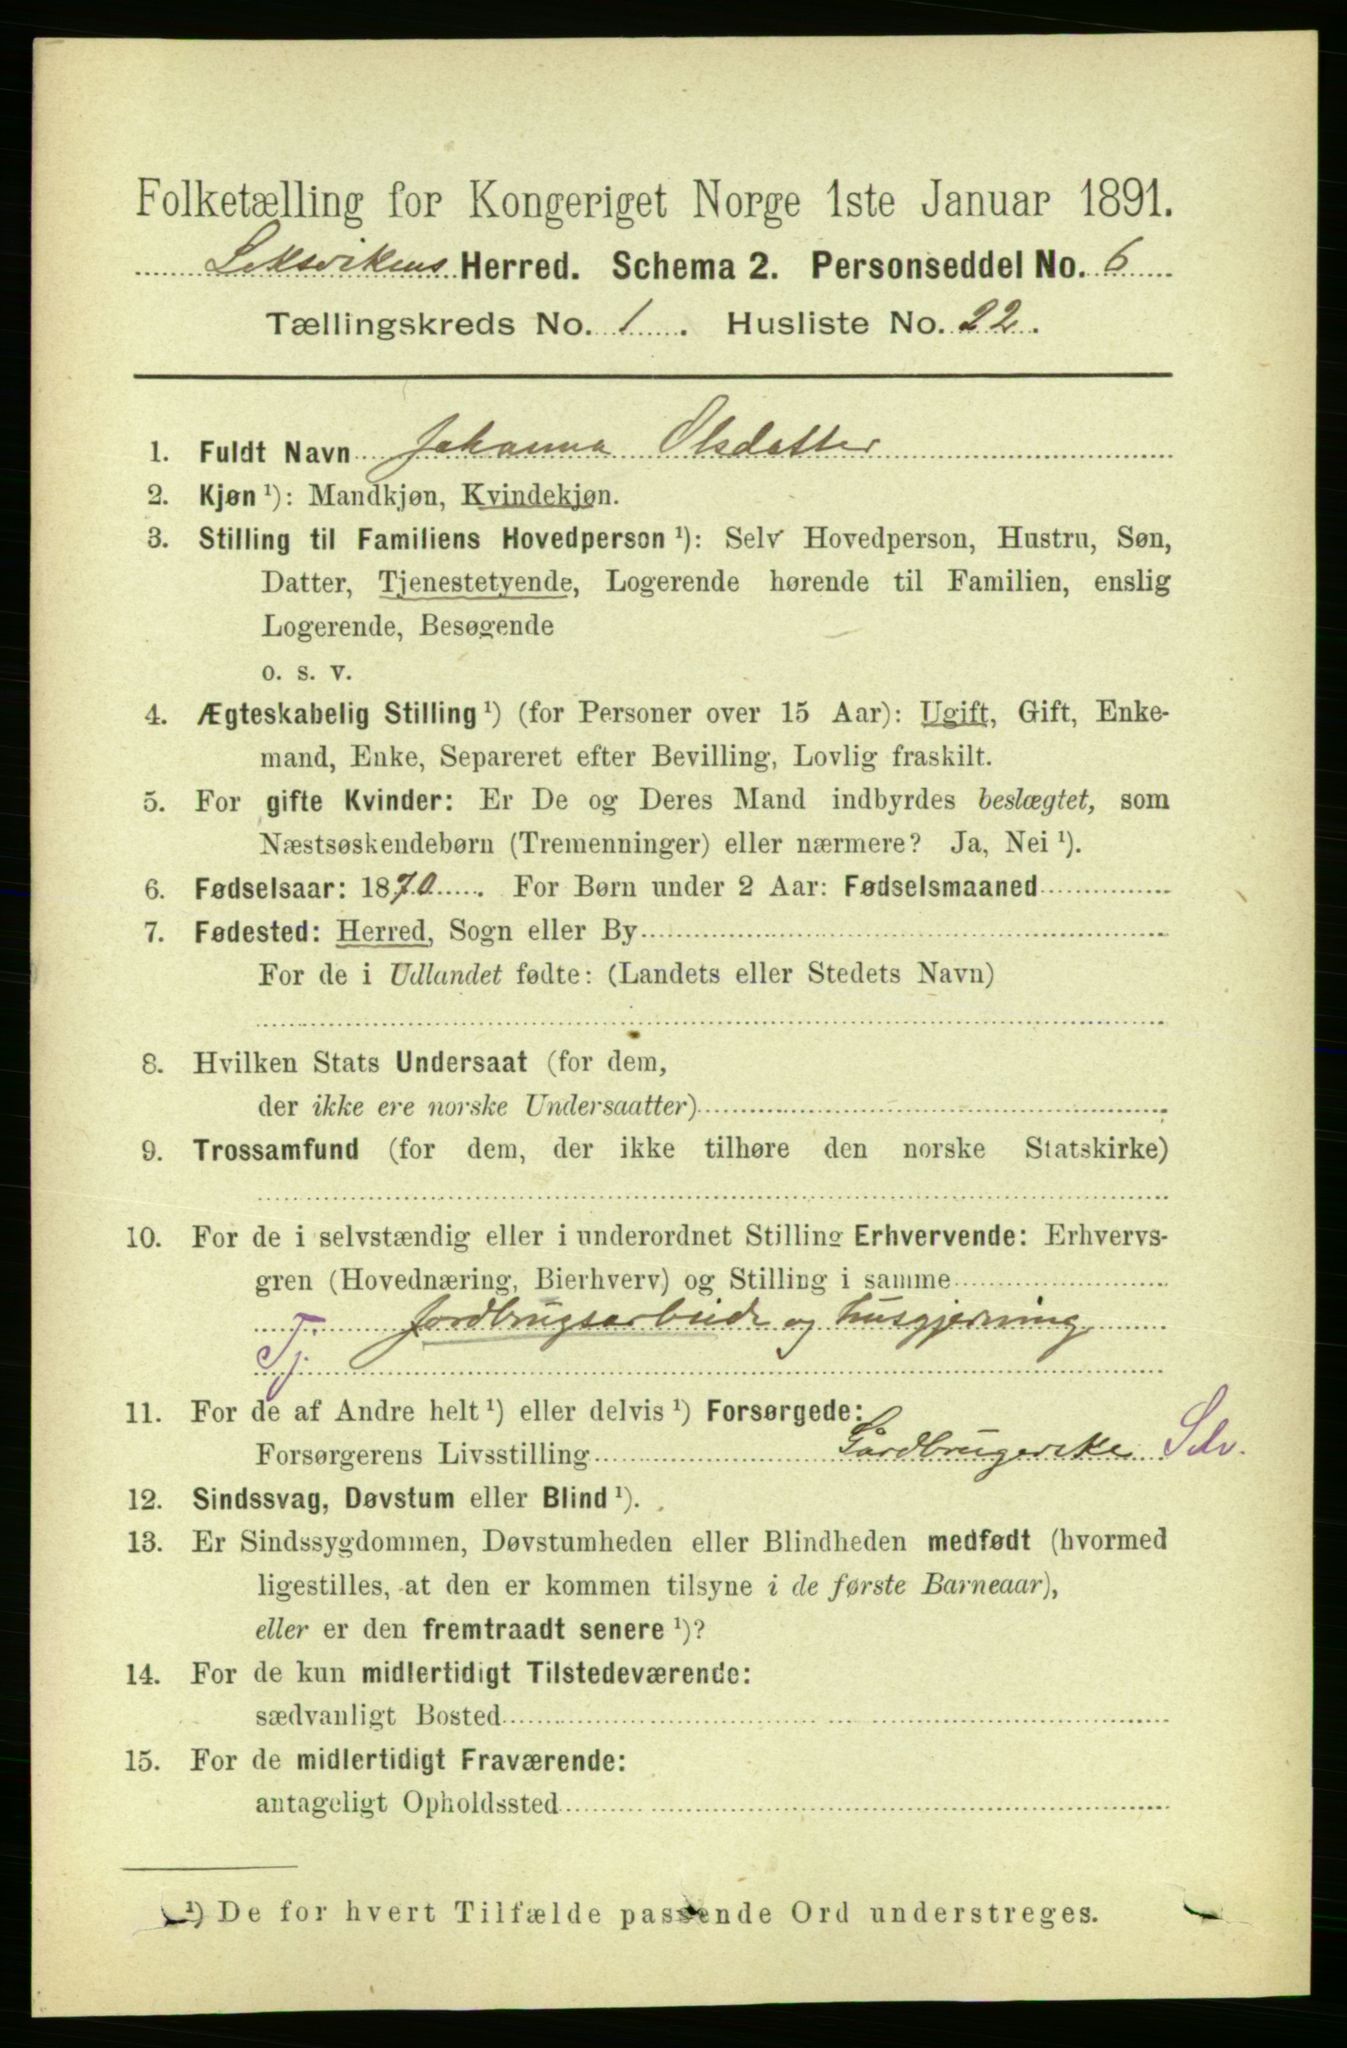 Folketælling for Kongeriget Norge 1ste Januar 1891.
Leksvikens Herred. Schema 2. Personseddel No. 6
Tællingskreds No. 1. Husliste No. 22.
1. Fuldt Navn Johanna Olsdatter
2. Kjøn ¹): Mandkjøn, Kvindekjøn.
3. Stilling til Familiens Hovedperson ¹): Selv Hovedperson, Hustru, Søn,
Datter, Tjenestetyende, Logerende hørende til Familien, enslig
Logerende, Besøgende
o. s. v.
4. Ægteskabelig Stilling ¹) (for Personer over 15 Aar): Ugift, Gift, Enke-
mand, Enke, Separeret efter Bevilling, Lovlig fraskilt.
5. For gifte Kvinder: Er De og Deres Mand indbyrdes beslægtet, som
Næstsøskendebørn (Tremenninger) eller nærmere? Ja, Nei ¹).
6. Fødselsaar: 1870. For Børn under 2 Aar: Fødselsmaaned
7. Fødested: Herred, Sogn eller By
For de i Udlandet fødte: (Landets eller Stedets Navn)
8. Hvilken Stats Undersaat (for dem,
der ikke ere norske Undersaatter)
9. Trossamfund (for dem, der ikke tilhøre den norske Statskirke)
10. For de i selvstændig eller i underordnet Stilling Erhvervende: Erhvervs-
gren (Hovednæring, Bierhverv) og Stilling i samme
T. jordbrugsarbeide og husgjerning
Tj.
11. For de af Andre helt ¹) eller delvis ¹) Forsørgede:
Forsørgerens Livsstilling Gardbrugerske Selv.
12. Sindssvag, Døvstum eller Blind ¹).
13. Er Sindssygdommen, Døvstumheden eller Blindheden medfødt (hvormed
ligestilles, at den er kommen tilsyne i de første Barneaar),
eller er den fremtraadt senere ¹)?
14. For de kun midlertidigt Tilstedeværende:
sædvanligt Bosted
15. For de midlertidigt Fraværende:
antageligt Opholdssted
¹) De for hvert Tilfælde passende Ord understreges.